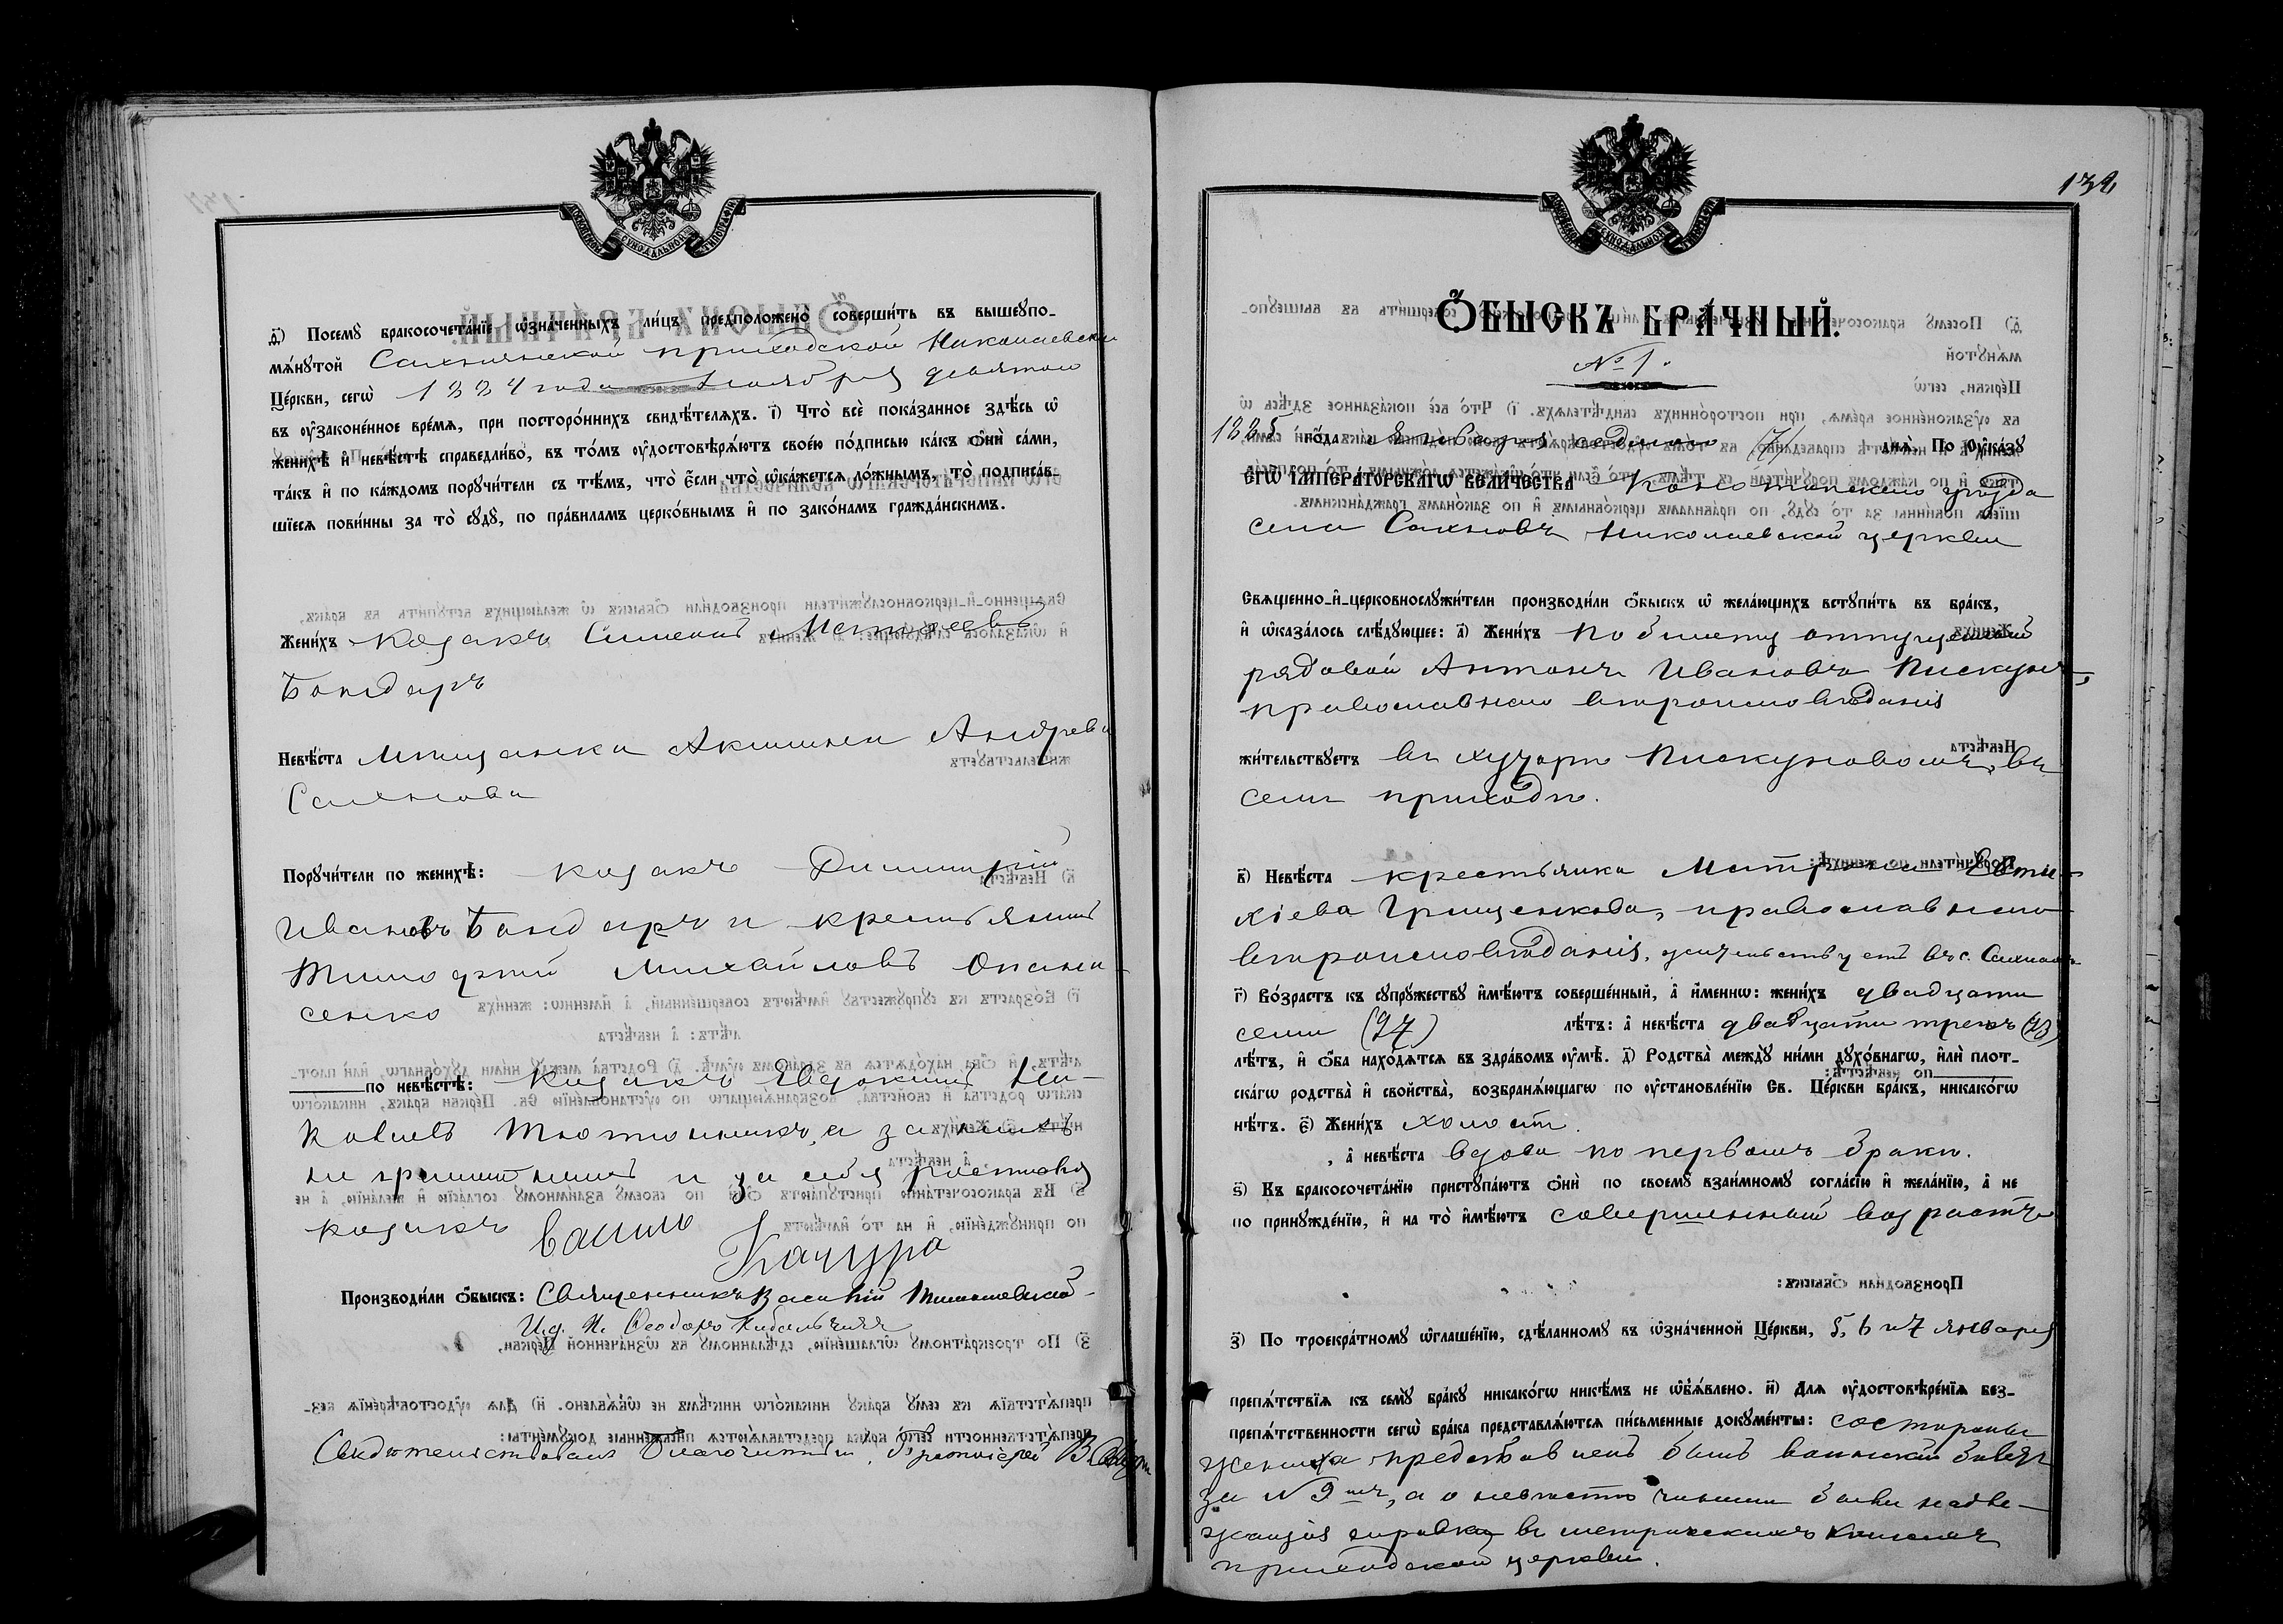 д҃) Посемꙋ̀ бракосочета́нїе ѡ҆зна́ченныхъ ли́цъ предположено̀ соверши́ть въ вышеꙋпо-
мѧ́нꙋтой Сахновской приходской Николаевской
Це́ркви, сегѡ̀ 1884 года Ноября девятого
въ ᲂу҆законе́нное вре́мѧ, при посторо́ннихъ свидѣ́телѧхъ. і҃) Что̀ всѐ пока́занное здѣ́сь ѡ҆
женихѣ̀ и҆ невѣ́стѣ справедли́во, въ то́мъ ᲂу҆достовѣрѧ́ютъ свое́ю по́дписью ка́къ ѻ҆нѝ са́ми,
та́къ и҆ по ка́ждомъ порꙋчи́тели съ тѣ́мъ, что̀ є҆́сли что̀ ѡ҆ка́жетсѧ ло́жнымъ, то̀ подписа́в-
шїесѧ пови́нны за то̀ сꙋдꙋ̀, по пра́виламъ церко́внымъ и҆ по зако́намъ гражда́нскимъ.
Жени́хъ козакъ Симеонъ Матѳеевъ
Бондарь
Невѣ́ста мѣщанка Акилина Андреева
Порꙋчи́тели по женихѣ̀: козакъ Димитрій
Ивановъ Бондарь и крестьянинъ
Тимоѳей Михайловъ Опана-
сенко
по невѣ́стѣ: козакъ Евдокимъ
Тютюнникъ, а за нихъ
неграмотныхъ и за себя росписался
козакъ Василь
Качура
Производи́ли ѻ҆́быскъ: Священникъ Василій
И. д. П. Ѳеодоръ Кибальчичъ
Свидѣтельствовалъ Благочинный, Протоіерей
132
Ѻ҆́БЫСКЪ БРА́ЧНЫЙ.
№ 1.
1885 го́да Января седьмого (7) днѧ̀. По Оу҆ка́зꙋ
ЄГѠ̀ І҆МПЕРА́ТОРСКАГѠ ВЕЛИ́ЧЕСТВА Конотопскаго уѣзда
села Сахновъ Николаевской церкви
Свѧще́нно-и҆-церковнослꙋжи́тели производи́ли ѻ҆́быскъ ѡ҆ жела́ющихъ встꙋпи́ть въ бра́къ,
и҆ ѡ҆каза́лось слѣ́дꙋющее: а҃) Жени́хъ по билету отпущенный
рядовой Антонъ Ивановъ Пискунъ,
православнаго вѣроисповѣданія
жи́тельствꙋетъ въ хуторѣ Пискуновомъ, въ
семъ приходѣ.
в҃) Невѣ́ста крестьянка Матрона Евти-
хіева Грищенкова, православнаго
вѣроисповѣданія, жительствуетъ въ с. Сахнахъ
г҃) Во́зрастъ къ сꙋпрꙋ́жествꙋ и҆мѣ́ютъ соверше́нный, а҆ и҆́меннѡ: жени́хъ двадцати
семи (27) лѣ́тъ: а҆ невѣ́ста двадцати трехъ (23)
лѣ́тъ, и҆ ѻ҆́ба нахо́дѧтсѧ въ здра́вомъ ᲂу҆мѣ̀. д҃) Родства̀ междꙋ̀ ни́ми дꙋхо́внагѡ, и҆лѝ плот-
ска́гѡ родства̀ и҆ сво́йства̀, возбранѧ́ющагѡ по ᲂу҆становле́нїю Св. Це́ркви бра́къ, никако́гѡ
нѣ́тъ. є҃) Жени́хъ холостъ
, а҆ невѣ́ста вдова по первомъ бракѣ.
ѕ҃) Къ бракосочета́нїю пристꙋпа́ютъ ѻ҆нѝ по своемꙋ̀ взаи́мномꙋ согла́сїю и҆ жела́нїю, а҆ не
по принꙋжде́нїю, и҆ на то̀ и҆мѣ́ютъ совершенный возрастъ
з҃) По троекра́тномꙋ ѡ҆глаше́нїю, сдѣ́ланномꙋ въ ѡ҆зна́ченной Це́ркви, 5, 6 и 7 января
препѧ́тствїѧ къ семꙋ̀ бра́кꙋ никако́гѡ никѣ́мъ не ѡ҆бъѧ́влено. и҃) Длѧ ᲂу҆достовѣре́нїѧ без-
препѧ́тственности сегѡ̀ бра́ка представлѧ́ютсѧ пи́сьменные докꙋме́нты: со стороны
жениха представленъ былъ воинскій билетъ
за № 9мъ, а о невѣстѣ чинима была надле-
жащая справка въ метрическихъ книгахъ
приходской церкви.